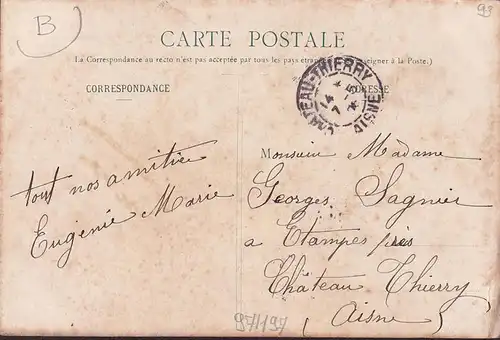 B
93
CARTE POSTALE
(La Correspondance au recto n'est pas acceptée par tous les pays étrangers à la Poste.)
CORRESPONDANCE
ADRESSE
CHATEAU-THIERRY
AISNE
14
7
tout nos amitiés
Eugénie Marie
Monsieur Madame
Georges Sagnier
a Etampes près
Château Thierry
(Aisne)
97119